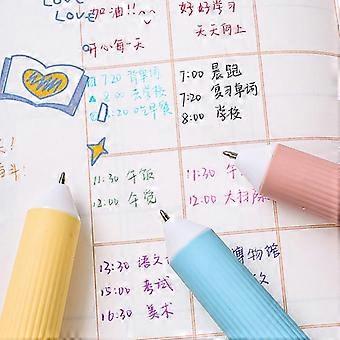 LOVE
LOVE
加油!!
好好学习
天天向上
开心每一天
7:20 背单词
8:00 去学校
8:20 吃早餐
7:00 晨跑
7:20 复习单词
8:00 学校
!
斗:
11:30 午饭
12:00 午觉
11:30 午
12:00 大扫除
13:30 语文
15:00 考试
16:30 美术
博物馆